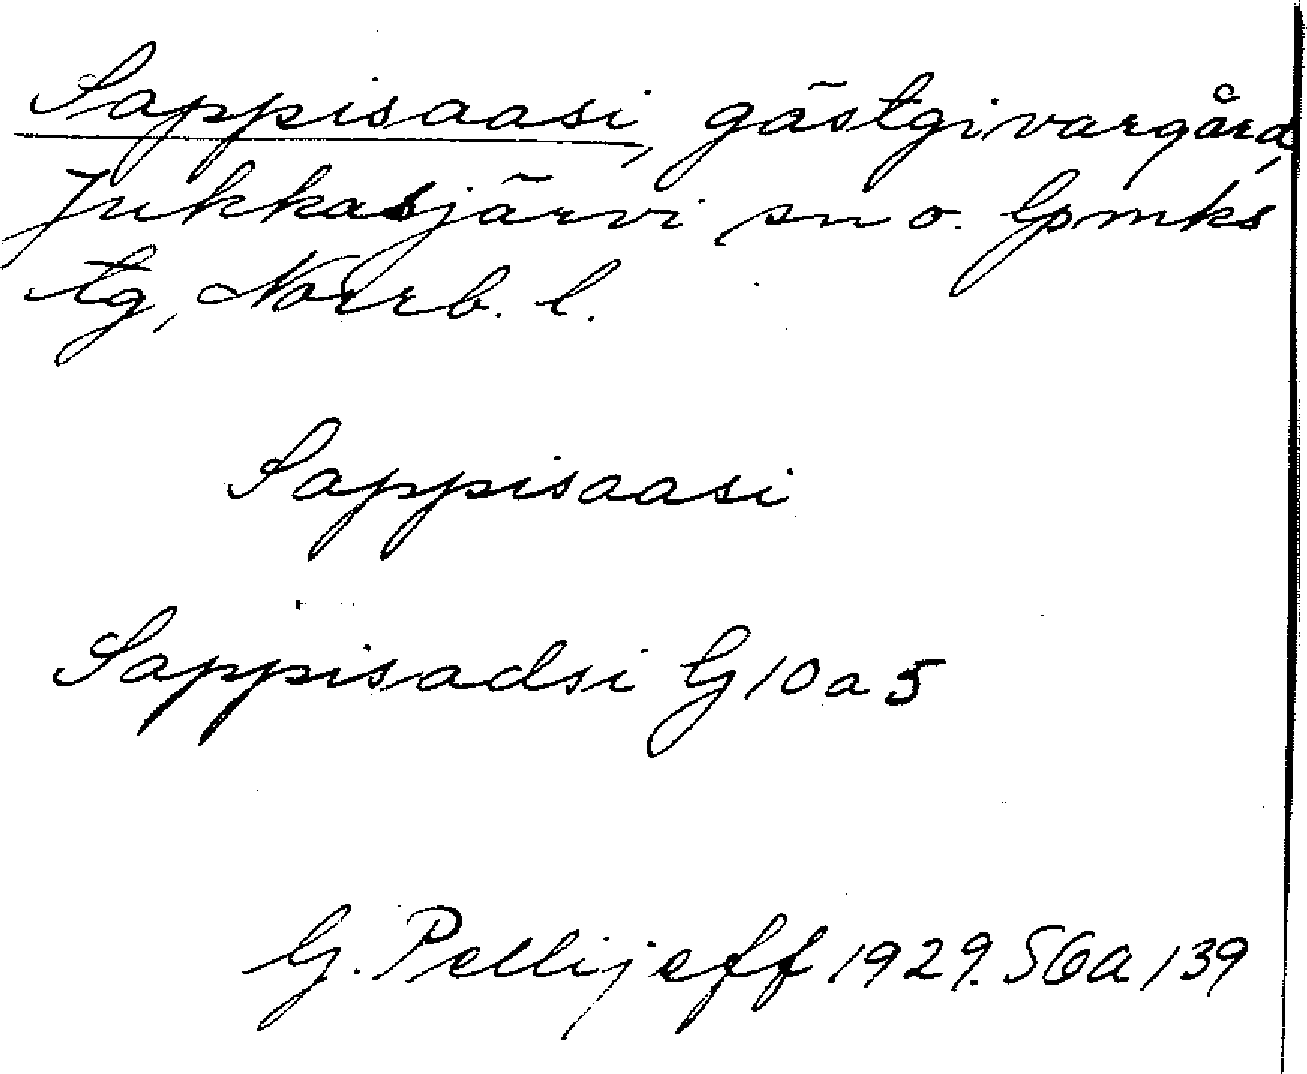 Sappisaasi, gästgivargård,
Jukkasjärvi sn o. lpmks
tg, Norrb. l.
Sappisaasi
Sappisadsi G 10 a 5
G. Pellijeff 1929. SGa 139